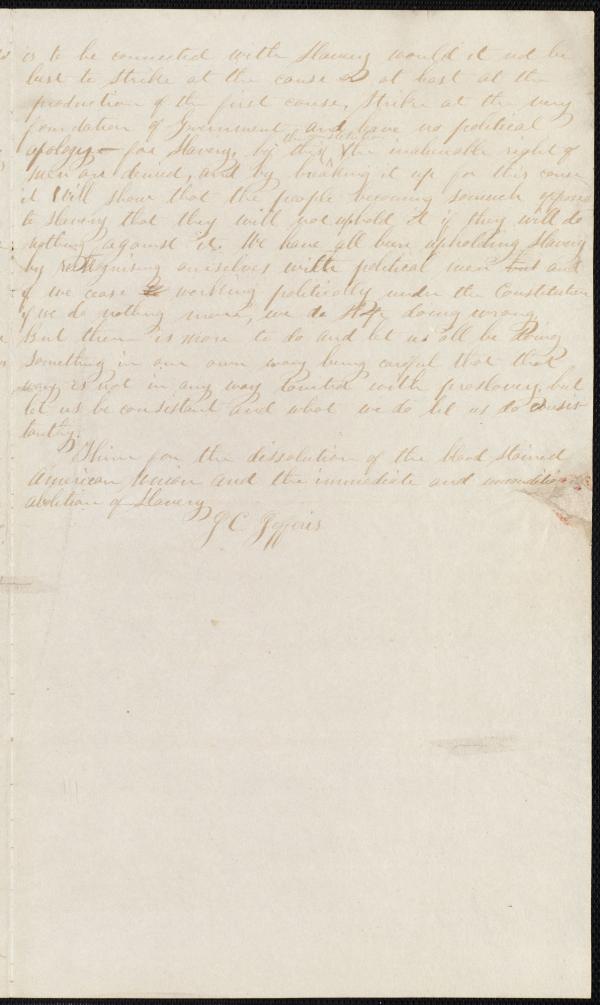 is to be connected with Slavery would it not be
best to Strike at the cause or at least at the
production of the first cause, Strike at the very
foundation of Government, and have no political
apology for Slavery, by this the inalienable right of
men are denied, and by breaking it up for this cause
it Will show that the people becoming somuch opposed
to slavery that they will not uphold it if they will do
nothing against it. We have all been upholding Slavery
by recognising ourselves with political men and
if we cease working politically under the Constitution
if we do nothing more, we do Stop doing wrong
But there is more to do and let us all be doing
Something in our own way being careful that that
way is not in any way tainted with proslavery, but
let us be consistant and what we do let us do consis
tantly.
Thine for the dissolution of the blood stained
American Union and the immediate and unconditional
abolition of Slavery
J C